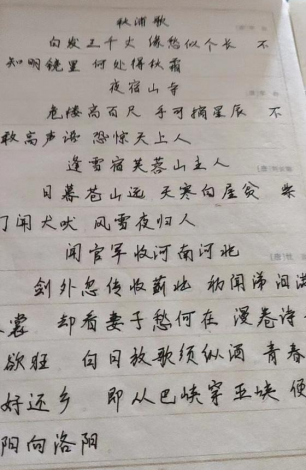 秋浦歌
白发三千丈 缘愁似个长 不
知明镜里 何处得秋霜
夜宿山寺
危楼高百尺 手可摘星辰 不
敢高声语 恐惊天上人
逢雪宿芙蓉山主人
日暮苍山远 天寒白屋贫 柴
门闻犬吠 风雪夜归人
闻官军收河南河北
剑外忽传收蓟北 初闻涕泪满
裳 却看妻子愁何在 漫卷诗
欲狂 白日放歌须纵酒 青春
好还乡 即从巴峡穿巫峡 便
阳向洛阳